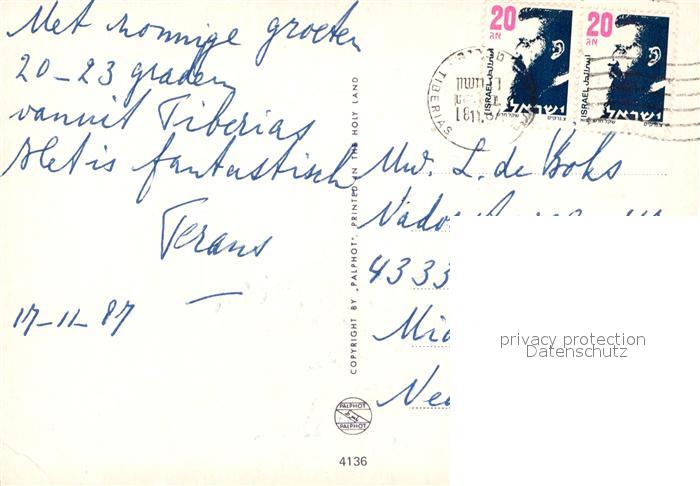 Met zonnige groeten
20-23 graden
vanuit Tiberias
Het is fantastisch
Frans
17-11-87
COPYRIGHT BY „PALPHOT", PRINTED IN THE HOLY LAND
PALPHOT
PALPHOT
4136
20
אג
ISRAEL
ישראל
20
אג
ISRAEL
ישראל
TIBERIAS
18.11.
Mw. L. de Boks
4333
Mid
Ned
privacy protection
Datenschutz